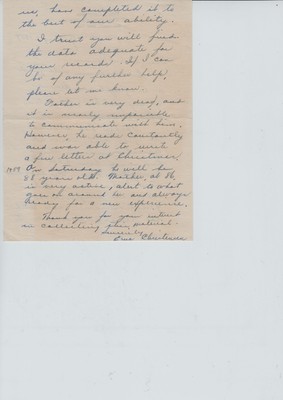 us, have completed it to
the best of our ability.
I trust you will find
the data adequate for
your records. If I can
be of any further help,
please let me know.
Father is very deaf, and
it is nearly impossible
to communicate with him.
However, he reads constantly
and was able to write
a few letters at Christmas.
On Saturday he will be
88 years old. Mother, at 86,
is very active, alert to what
goes on around her and always
ready for a new experience.
Thank you for your interest
in collecting this material.
Sincerely,
Christensen